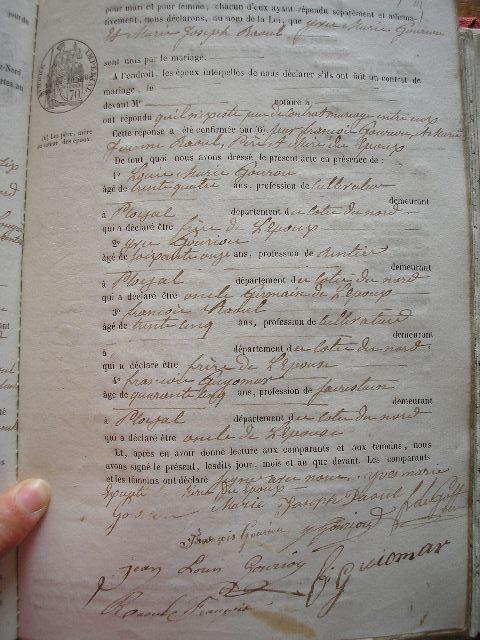 pour mari et pour femme; chacun d'eux ayant répondu séparément et affirma-
tivement, nous déclarons, au nom de la Loi, que Yves Marie Gouriou
Et Marie Joseph Raoul
sont unis par le mariage.
A l'endroit, les époux interpellés de nous déclarer s'ils ont fait un contrat de
mariage, le
devant Me notaire à
ont répondu qu'il n'existe pas de contrat mariage entre eux
Cette réponse a été confirmée par (6)
(6) Les père, mère
ou tuteur des époux.
Raoul, Père et Mère des Epoux
De tout quoi nous avons dressé le présent acte en présence de:
1° Marie Gouriou
âgé de trente quatre ans, profession de cultivateur
demeurant
à Ploëzal département des cotes du nord
qui a déclaré être frère de L'epoux
2° Yves Gouriou
âgé de soixante onze ans, profession de Rentier
demeurant
à Ploëzal département des cotes du nord
qui a déclaré être oncle Germain de L'epoux
3° françois Raoul
âgé de trente cinq ans, profession de cultivateur
demeurant
à département des cotes du nord
qui a déclaré être frère de L'epouse
4° françois Guyomar
âgé de quarante cinq ans, profession de
demeurant
à Ploëzal département des cotes du nord
qui a déclaré être oncle de L'epouse
Et, après en avoir donné lecture aux comparants et aux témoins, nous
avons signé le présent, lesdits jour, mois et an que devant. Les comparants
et les témoins ont déclaré signer avec nous. Yves marie
Marie Joseph Raoul
François Gouriou y gouriou
jean Louis Gouriou
Guiomar
Raoul François